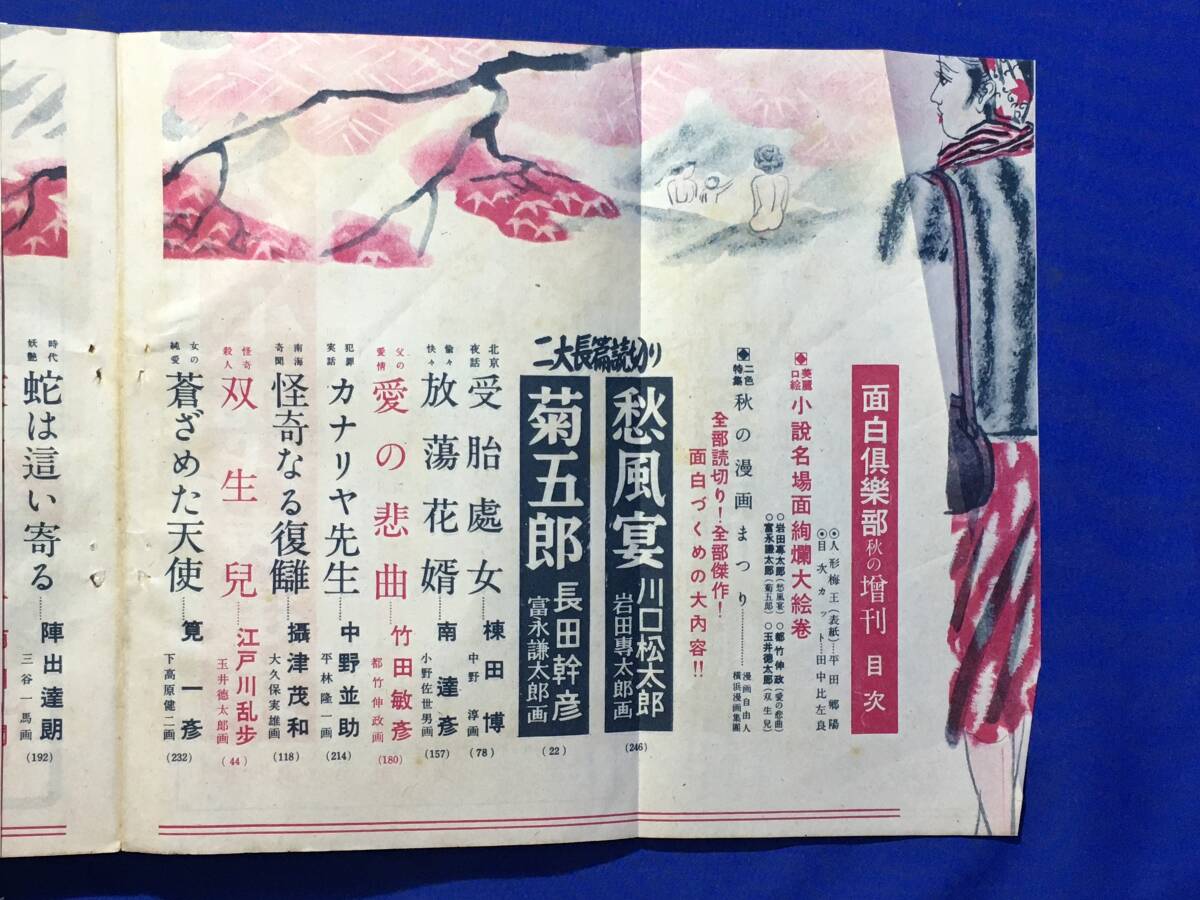 面白倶樂部 秋の増刊 目次
◎人形梅王(表紙)…平田郷陽
◎目次カット…田中比左良
◆美麗口絵 小説名場面絢爛大絵巻
○岩田專太郎(愁風宴) ○都竹伸政(愛の悲曲)
○富永謙太郎(菊五郎) ○玉井徳太郎(双生兒)
◆二色特集 秋の漫画まつり……漫画自由人 横浜漫画集團
全部読切り!全部傑作!
面白づくめの大内容!!
二大長篇読切り
愁風宴 川口松太郎 岩田專太郎画 (246)
菊五郎 長田幹彦 富永謙太郎画 (22)
北京夜話 受胎處女……棟田博 中野淳画 (78)
愉々快々 放蕩花婿……南達彦 小野佐世男画 (157)
父の愛情 愛の悲曲……竹田敏彦 都竹伸政画 (180)
犯罪実話 カナリヤ先生……中野並助 平林隆一画 (214)
南海奇聞 怪奇なる復讎……攝津茂和 大久保実雄画 (118)
怪奇殺人 双生兒……江戸川乱歩 玉井徳太郎画 (44)
女の純愛 蒼ざめた天使……筧一彦 下高原健二画 (232)
時代妖艶 蛇は這い寄る……陣出達朗 三谷一馬画 (192)